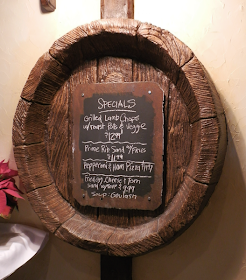 SPECIALS
Grilled Lamb Chops
w/roast Pots & Veggie
$12.99
Prime Rib Sand w/Fries
$11.99
Pepperoni & Ham Pizza
Cheese &
Soup - Goulash